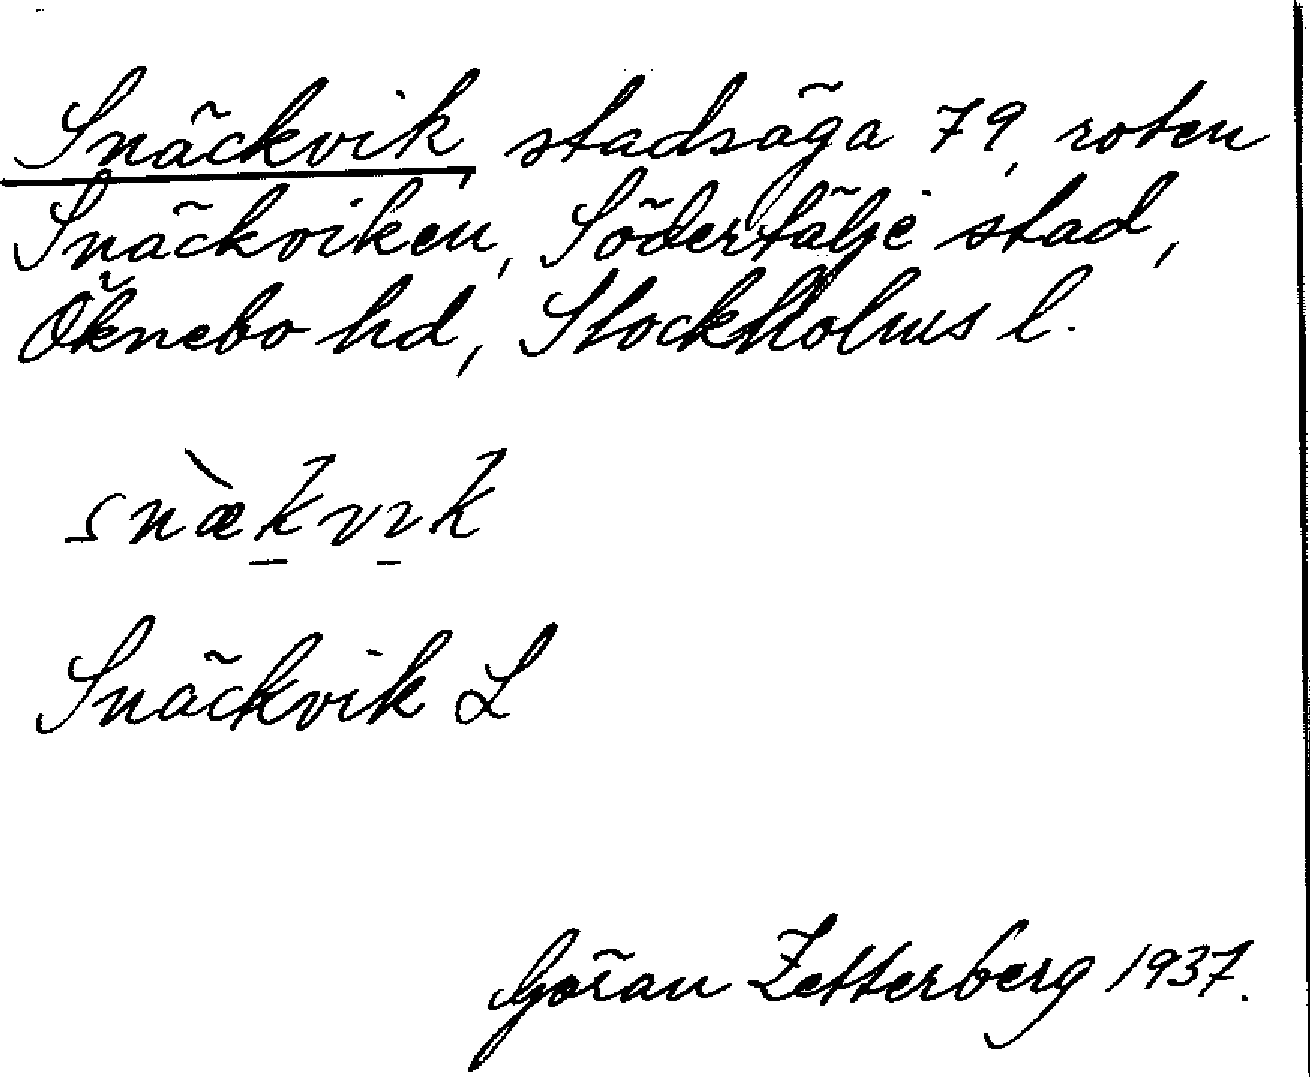 Snäckvik, stadsäga 79, roten
Snäckviken, Södertälje stad,
Öknebo hd, Stockholms l.
snæ̀k̠vı̠k
Snäckvik L
Göran Zetterberg 1937.